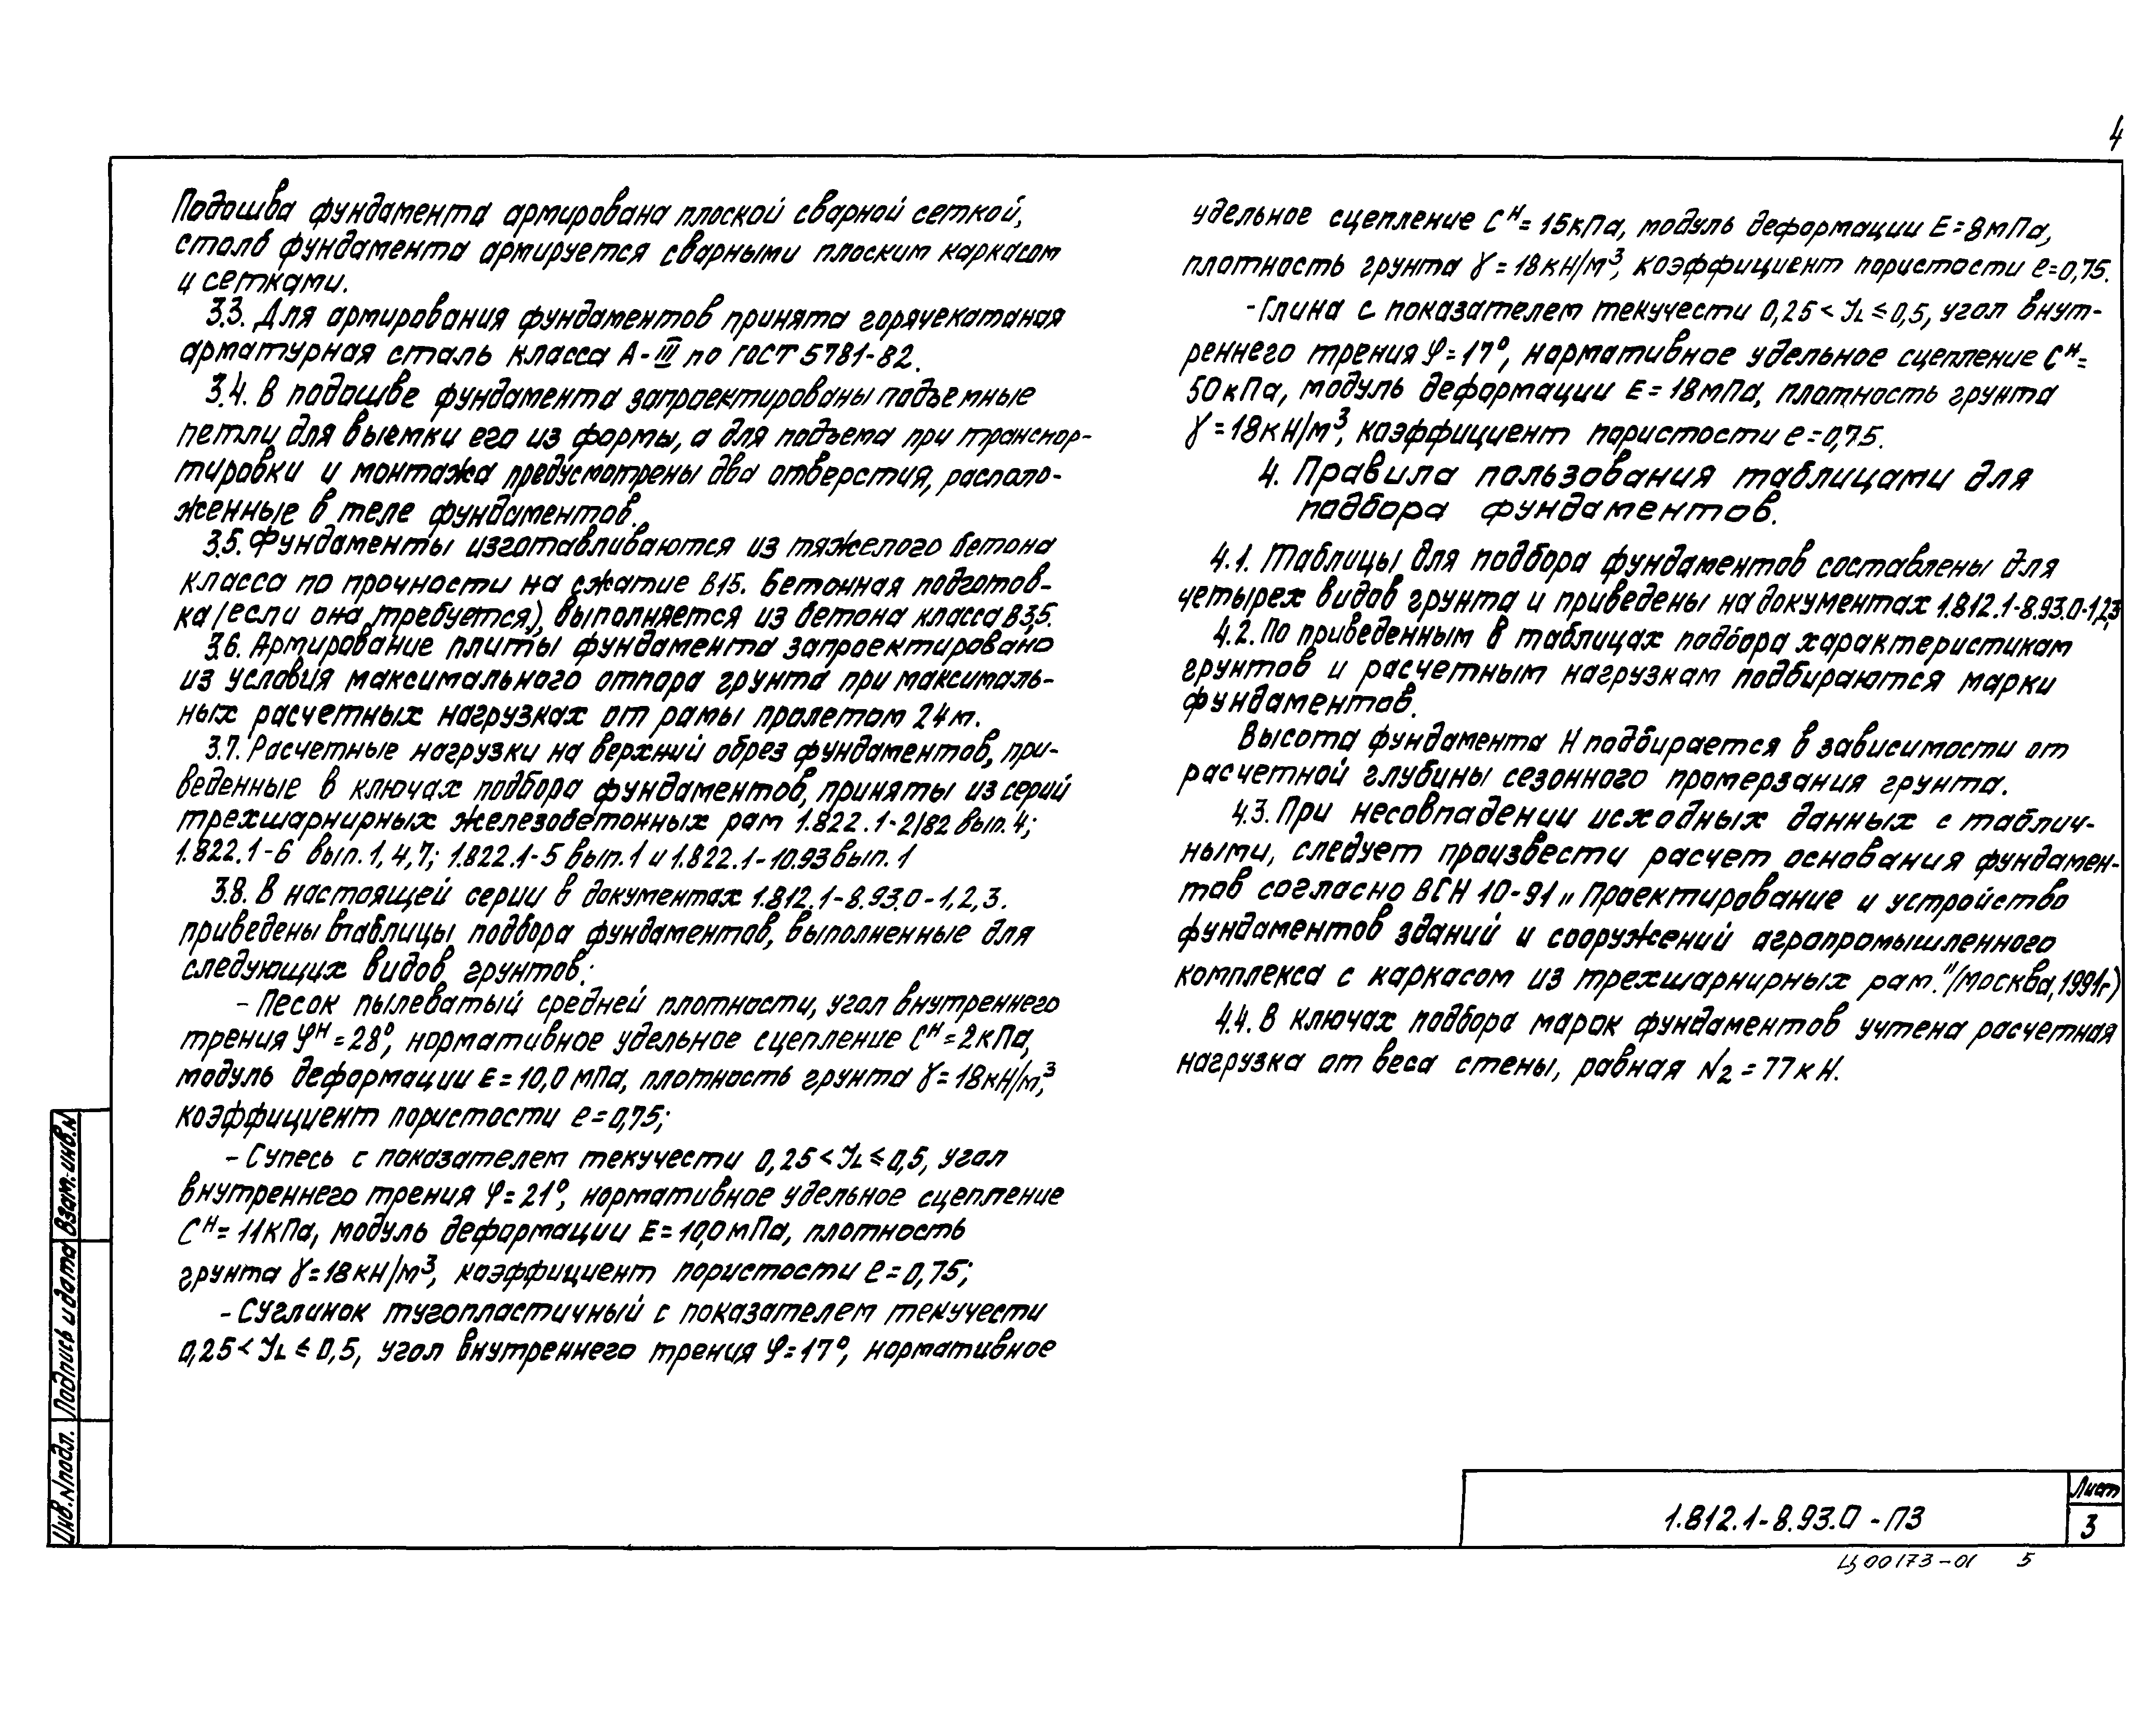 4
Подошва фундамента армирована плоской сварной сеткой,
столб фундамента армируется сварными плоским каркасом
и сетками.
3.3. Для армирования фундаментов принята горячекатаная
арматурная сталь класса А-III по ГОСТ 5781-82.
3.4. В подошве фундамента запроектированы подъемные
петли для выемки его из формы, а для подъема при транспор-
тировки и монтажа предусмотрены два отверстия, располо-
женные в теле фундаментов.
3.5. Фундаменты изготавливаются из тяжелого бетона
класса по прочности на сжатие В15. Бетонная подготов-
ка (если она требуется), выполняется из бетона класса В3,5.
3.6. Армирование плиты фундамента запроектировано
из условия максимального отпора грунта при максималь-
ных расчетных нагрузках от рамы пролетом 24м.
3.7. Расчетные нагрузки на верхний обрез фундаментов, при-
веденные в ключах подбора фундаментов, приняты из серий
трехшарнирных железобетонных рам 1.822.1-2/82 вып. 4;
1.822.1-6 вып. 1, 4, 7; 1.822.1-5 вып. 1 и 1.822.1-10.93 вып. 1
3.8. В настоящей серии в документах 1.812.1-8.93.0-1, 2, 3.
приведены таблицы подбора фундаментов, выполненные для
следующих видов грунтов:
- Песок пылеватый средней плотности, угол внутреннего
трения φᴴ=28°, нормативное удельное сцепление Cᴴ=2кПа,
модуль деформации E=10,0 мПа, плотность грунта γ=18кН/м³,
коэффициент пористости e=0,75;
- Супесь с показателем текучести 0,25<JL≤0,5, угол
внутреннего трения φ=21°, нормативное удельное сцепление
Cᴴ=11кПа, модуль деформации E=10,0мПа, плотность
грунта γ=18кН/м³, коэффициент пористости e=0,75;
- Суглинок тугопластичный с показателем текучести
0,25<JL≤0,5, угол внутреннего трения φ=17°, нормативное
удельное сцепление Cᴴ=15кПа, модуль деформации E=8мПа,
плотность грунта γ=18кН/м³, коэффициент пористости e=0,75.
- Глина с показателем текучести 0,25<JL≤0,5, угол внут-
реннего трения φ=17°, нормативное удельное сцепление Cᴴ=
50кПа, модуль деформации E=18мПа, плотность грунта
γ=18кН/м³, коэффициент пористости e=0,75.
4. Правила пользования таблицами для
подбора фундаментов.
4.1. Таблицы для подбора фундаментов составлены для
четырех видов грунта и приведены на документах 1.812.1-8.93.0-1,2,3
4.2. По приведенным в таблицах подбора характеристикам
грунтов и расчетным нагрузкам подбираются марки
фундаментов.
Высота фундамента Н подбирается в зависимости от
расчетной глубины сезонного промерзания грунта.
4.3. При несовпадении исходных данных с таблич-
ными, следует произвести расчет основания фундамен-
тов согласно ВСН 10-91 „Проектирование и устройство
фундаментов зданий и сооружений агропромышленного
комплекса с каркасом из трехшарнирных рам." (Москва, 1991г)
4.4. В ключах подбора марок фундаментов учтена расчетная
нагрузка от веса стены, равная N₂=77кН.
Взам. инв. N
Подпись и дата
Инв. N подл.
1.812.1-8.93.0-ПЗ
Лист
3
Ц00173-01 5